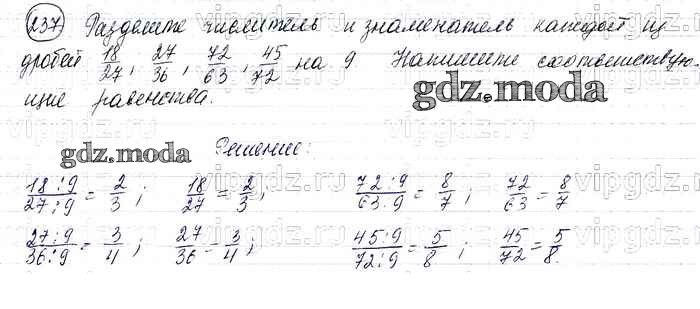 237 Разделите числитель и знаменатель каждой из
дробей 18/27, 27/36, 72/63, 45/72 на 9 Напишите соответствую-
щие равенства.
gdz.moda
gdz.moda
Решение:
18:9/27:9 = 2/3; 18/27 = 2/3; 72:9/63:9 = 8/7; 72/63 = 8/7
27:9/36:9 = 3/4; 27/36 = 3/4; 45:9/72:9 = 5/8; 45/72 = 5/8.
vipgdz.ru